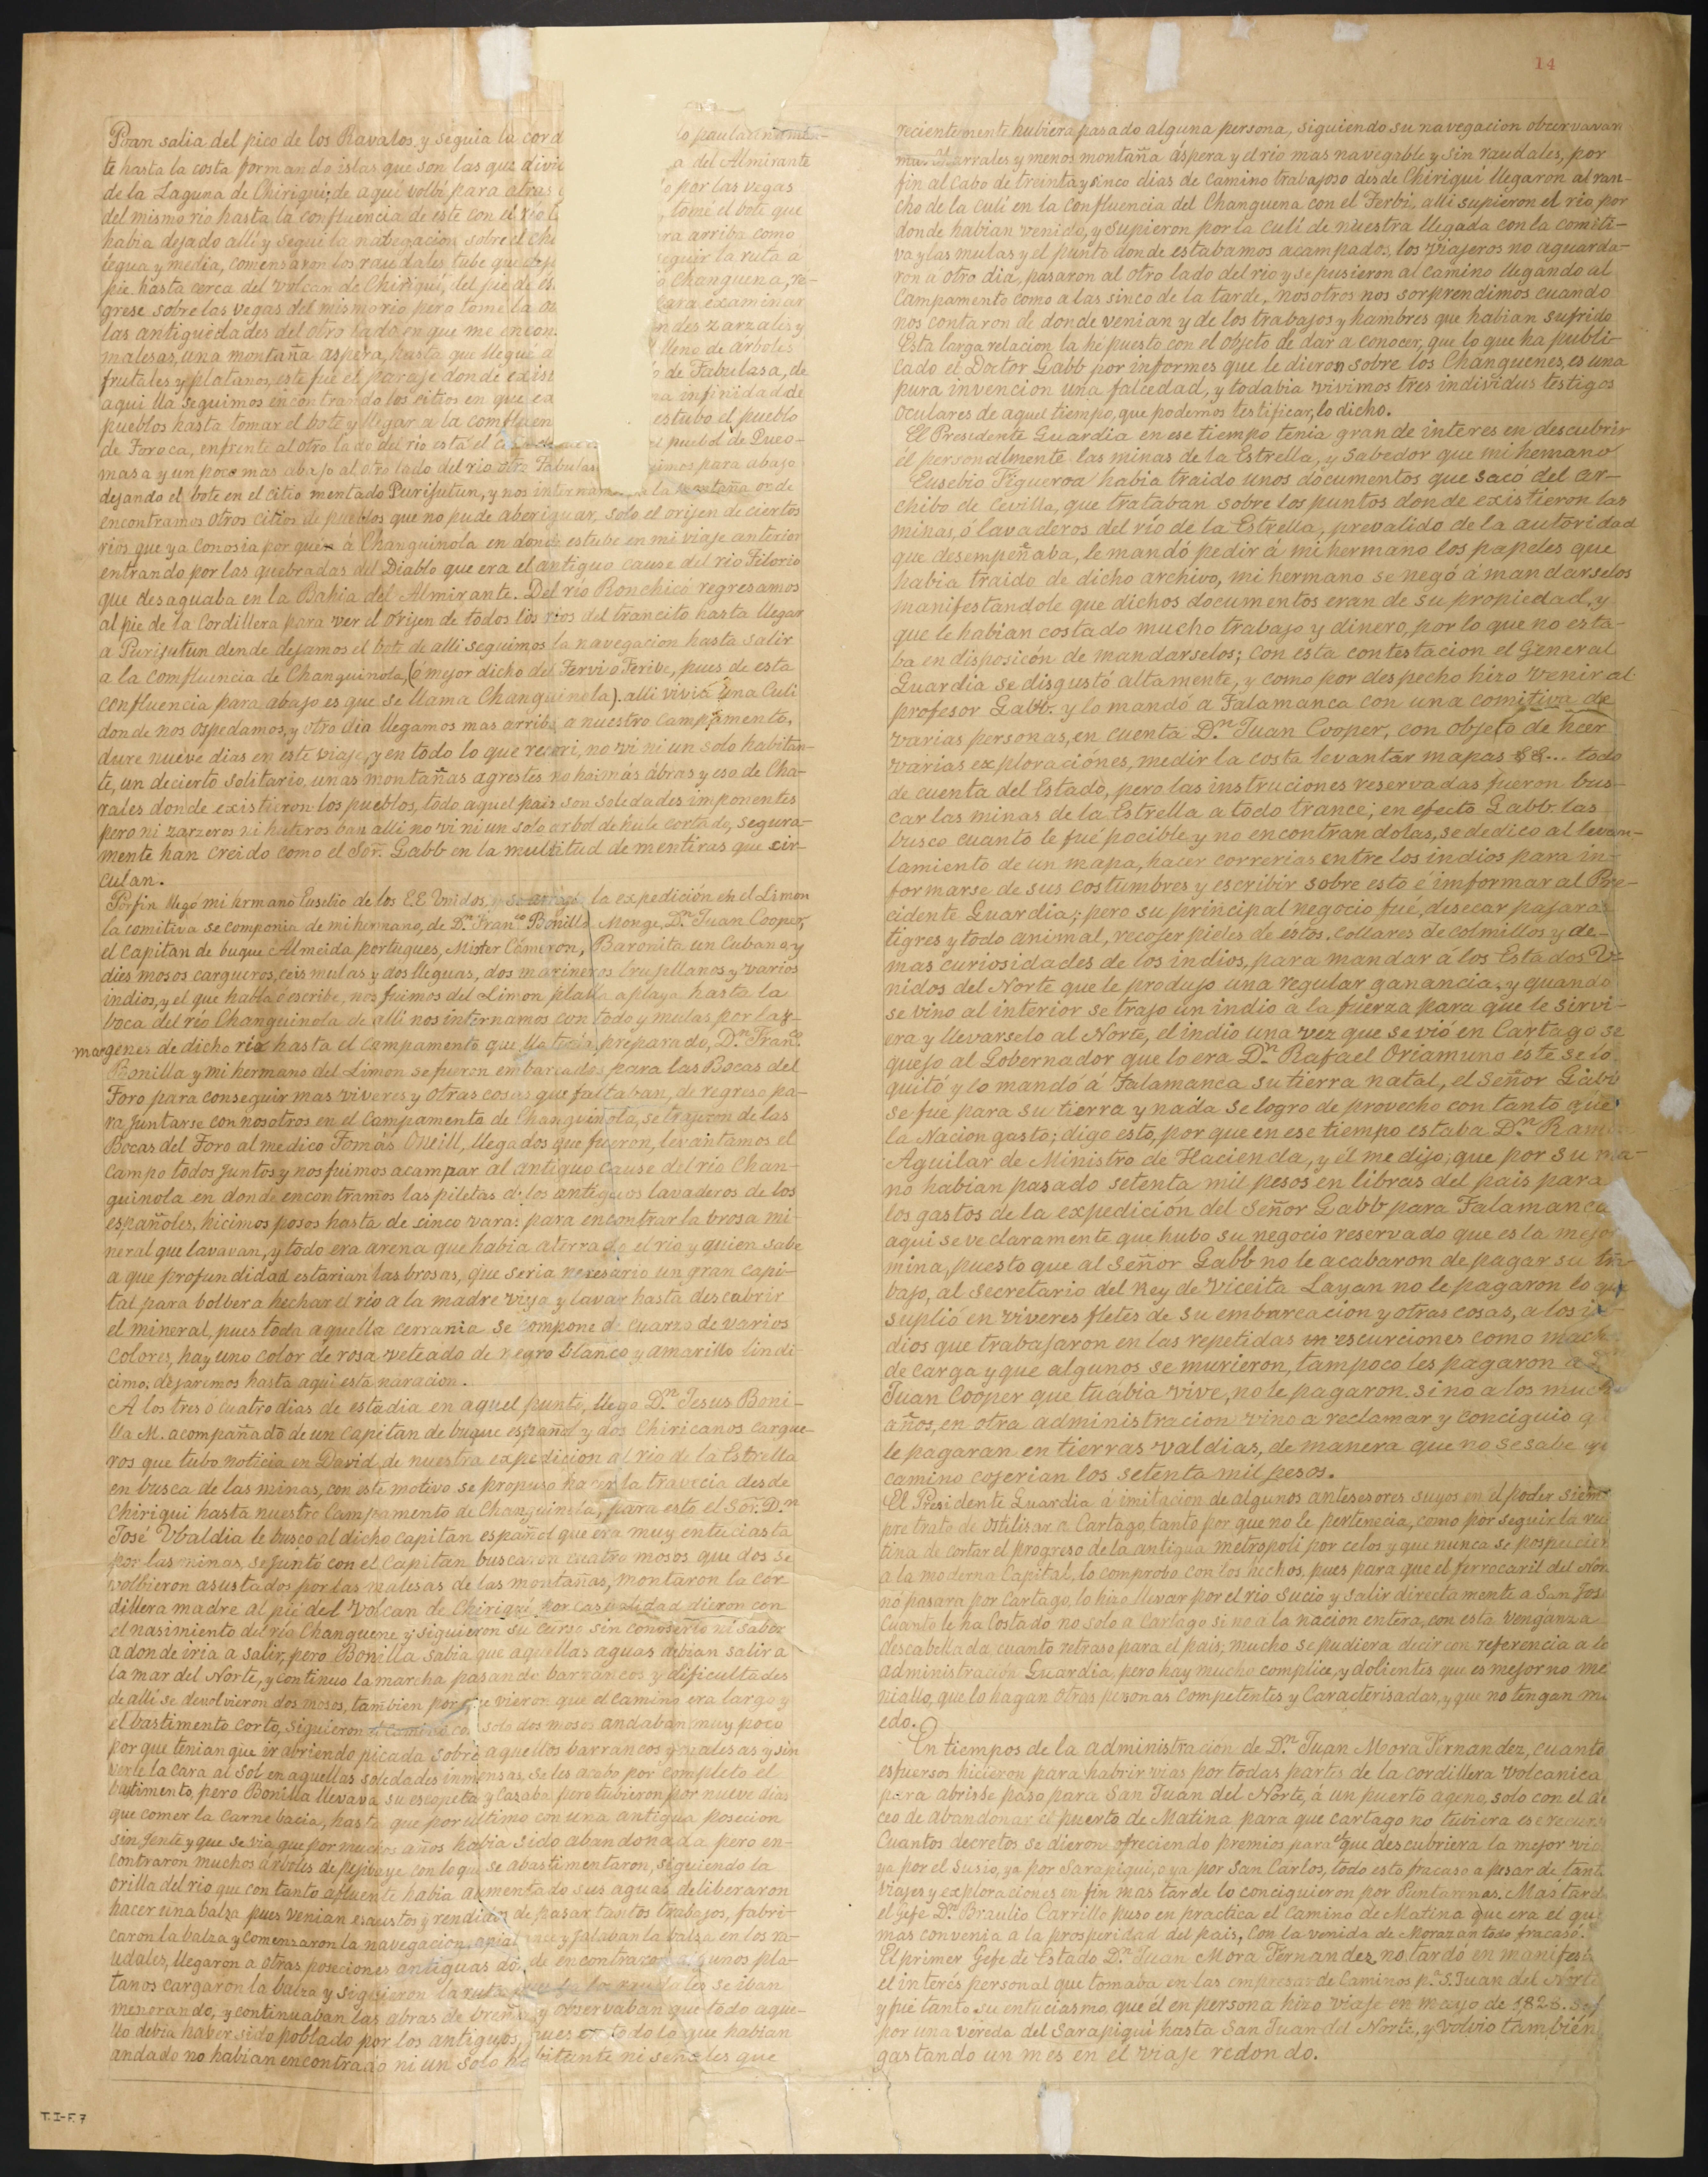 14
Poan salia del pico de los Ravalos, y seguia la cord
te hasta la costa formando islas que son las que divid
de la Laguna de Chiriqui; de aqui volbi para atras
del mismo rio hasta la confluencia de este con el rio
habia dejado alli y segui la nabegacion sobre el Ch
legua y media, comensaron los raudales tube que
pie hasta cerca del volcan de Chiriqui, del pie de es
grese sobre las vegas del mismo rio pero tomé la
las antiguedades del otro lado en que me encon
malesas, una montaña aspera, hasta que llegué a
frutales y platanos, este fué el paraje donde exist
aqui lla seguimos encontrando los citios en que
pueblos hasta tomar el bote y llegar a la confluen
de Toroca, enfrente al otro lado del rio está el
masa y un poco mas abajo al otro lado del rio otra Tabulas
lo paulatinamen-
a del Almirante
o por las vegas
, tomé el bote que
ra arriba como
seguir la ruta a
o Changuena, re-
para examinar
ndes zarzales y
lleno de arboles
o de Tabulasa, de
na infinidad de
estubo el pueblo
el puebol de Queo-
uimos para abajo
dejando el bote en el citio mentado Purisutun, y nos internam la montaña onde
encontramos otros citios de pueblos que no pude aberiguar, solo el orijen de ciertos
rios que ya conosia por que á Changuinola en donde estube en mi viaje anterior
entrando por las quebradas del Diablo que era el antiguo cause del rio Tilorio
que desaguaba en la Bahia del Almirante. Del rio Ronchicó regresamos
al pie de la Cordillera para ver el orijen de todos los rios del trancito hasta llegar
a Purisutun dende dejamos el bote de alli seguimos la navegacion hasta salir
a la comfluencia de Changuinola, (ó mejor dicho del Tervi o Teribe, pues de esta
confluencia para abajo es que se llama Changuinola). alli vivia una Culi
donde nos ospedamos, y otro dia llegamos mas arriba a nuestro campamento,
dure nueve dias en este viaje, y en todo lo que recori, no vi ni un solo habitan-
te, un decierto solitario, unas montañas agrestes no hai más ábras y eso de Cha-
rales donde existieron los pueblos, todo aquel pais son soledades imponentes
pero ni zarzeros ni huleros ban alli no vi ni un solo arbol de hule cortado, segura-
mente han creido como el Sor. Gabb en la multitud de mentiras que cir-
culan.
Porfin llegó mi hrmano Eusebio de los E.E. Unidos, la expedición en el Limon
la comitiva se componia de mi hermano, de Dn. Franco. Bonilla Monge, Dn. Juan Cooper,
el capitan de buque Almeida portugues, Mister Cámeron, Baronita un Cubano, y
dies mosos cargueros, ceis mulas y dos lleguas, dos marineros trujillanos y varios
indios, y el que habla o escribe, nos fuimos del Limon plalla a playa hasta la
boca del rio Changuinola de alli nos internamos con todo y mulas por las
margenes de dicho rio hasta el campamento que lla tenia preparado, Dn. Franco.
Bonilla y mi hermano del Limon se fueron embarcados para las Bocas del
Toro para conseguir mas viveres y otras cosas que faltaban, de regreso pa-
ra juntarse con nosotros en el campamento de Changuinola, se trajeron de las
Bocas del Toro al medico Tomás Oneill, llegados que fueron, levantamos el
campo todos juntos y nos fuimos acampar al antiguo cause del rio Chan-
guinola en donde encontramos las piletas de los antiguos lavaderos de los
españoles, hicimos posos hasta de cinco varas para encontrar la brosa mi-
neral que lavavan, y todo era arena que habia aterrado el rio y quien sabe
a que profundidad estarian las brosas, que seria nesesario un gran capi-
tal para bolbera hechar el rio a la madre vieja y lavar hasta descubrir
el mineral, pues toda aquella cerrania se compone de cuarzo de varios
colores, hay uno color de rosa veteado de negro blanco y amarillo lindi
cimo, dejaremos hasta aqui esta naracion.
A los tres o cuatro dias de estadia en aquel punto, llego Dn. Jesus Boni-
lla M. acompañado de un capitan de buque español y dos Chiricanos cargue-
ros que tubo noticia en David, de nuestra expedicion al rio de la Estrella
en busca de las minas, con este motivo se propuso hacer la travecia desde
Chiriqui hasta nuestro Campamento de Changuinola, para esto el Sor. Dn.
José Ubaldia le busco al dicho capitan español que era muy entuciasta
por las minas, se juntó con el capitan buscaron cuatro mosos que dos se
volbieron asustados por las malesas de las montañas, montaron la cor
dillera madre al pié del Volcan de Chiriqui por casualidad dieron con
el nasimiento del rio Changuene y siguieron su curso sin conoserlo ni saber
a donde iria a salir, pero Bonilla sabia que aquellas aguas debian salir a
la mar del Norte, y continuo la marcha pasando barrancos y dificultades
de alli se devolvieron dos mosos, tambien porque vieron que el camino era largo y
el bastimento corto, siguieron con solo dos mosos andaban muy poco
por que tenian que ir abriendo picada sobre aquellos barrancos y malesas y sin
verle la cara al Sol en aquellas soledades inmensas, se les acabo por completo el
bastimento, pero Bonilla llevava su escopeta y cazaba pero tubieron por nueve dias
que comer la carne bacia, hasta que por ultimo con una antigua posecion
sin jente y que se via que por muchos años habia sido abandonada pero en-
contraron muchos árboles de pejivaye con lo que se abastimentaron, siguiendo la
orilla del rio que con tanto afluente habia aumentado sus aguas, deliberaron
hacer una balza pues venian esaustos y rendidos de pasar tantos trabajos, fabri-
caron la balza y comenzaron la navegacion, y jalaban la balza en los ra-
udales, llegaron a otras poseciones antiguas do de encontraron algunos pla-
tanos cargaron la balza y siguieron la ruta se iban
menorando, y continuaban las abras de breña y observaban que todo aque-
llo debia haver sido poblado por los antiguos, pues en todo lo que habian
andado no habian encontrado ni un solo habitante ni señales que
recientemente hubiera pasado alguna persona, siguiendo su navegacion obcervavan
mas Charrales y menos montaña áspera y el rio mas navegable y sin raudales, por
fin al cabo de treinta y sinco dias de camino trabajoso desde Chiriqui llegaron al ran-
cho de la culí en la confluencia del Changuena con el Terbi, alli supieron el rio, por
donde habian venido, y supieron por la culí de nuestra llegada con la comiti-
va y las mulas y el punto donde estabamos acampados, los viajeros no aguarda-
ron a otro dia, pasaron al otro lado del rio y se pusieron al camino llegando al
Campamento como a las sinco de la tarde, nosotros nos sorprendimos cuando
nos contaron de donde venian y de los trabajos y hambres que habian sufrido
Esta larga relacion la hé puesto con el objeto de dar a conocer, que lo que ha publi-
cado el Doctor Gabb por informes que le dieron sobre los Changuenes, es una
pura invencion una falcedad, y todabia vivimos tres individus testigos
oculares de aquel tiempo, que podemos testificar, lo dicho.
El Presidente Guardia en ese tiempo tenia grande interes en descubrir
él personalmente las minas de la Estrella, y sabedor que mi hemano
Eusebio Figueroa habia traido unos documentos que sacó del ar-
chibo de Cevilla, que trataban sobre los puntos donde existieron las
minas, ó lavaderos del rio de la Estrella, prevalido de la autoridad
que desempeñaba, le mandó pedir á mi hermano los papeles que
habia traido de dicho archivo, mi hermano se negó á mandarselos
manifestandole que dichos documentos eran de su propiedad, y
que le habian costado mucho trabajo y dinero, por lo que no esta-
ba en disposicón de mandarselos; con esta contestacion el General
Guardia se disgustó altamente, y como por despecho hizo venir al
profesor Gabb. y lo mandó á Talamanca con una comitiva de
varias personas, en cuenta Dn. Juan Cooper, con objeto de hcer
varias exploraciónes, medir la costa levantar mapas && ... todo
de cuenta del Estado, pero las instruciones reservadas fueron bus-
car las minas de la Estrella a todo trance; en efecto Gabb las
busco cuanto le fué pocible y no encontrandolas, se dedico al levan-
tamiento de un mapa, hacer correrias entre los indios para in-
formarse de sus costumbres y escribir sobre esto é imformar al Pre-
cidente Guardia; pero su principal negocio fué, desecar pajaros
tigres y todo animal, recojer pieles de estos, collares de colmillos y de-
mas curiosidades de los indios, para mandar á los Estados U-
nidos del Norte que le produjo una regular ganancia, y quando
se vino al interior se trajo un indio a la fuerza para que le sirvi-
era y llevarselo al Norte, el indio una vez que se vió en Cartago se
quejo al Gobernador que lo era Dn. Rafael Oriamuno éste se lo
quitó y lo mandó á Talamanca su tierra natal, el Señor Gabb
se fue para su tierra y nada se logro de provecho con tanto que
la Nacion gasto; digo esto, por que en ese tiempo estaba Dn. Ram
Aguilar de Ministro de Hacienda, y él me dijo, que por su ma-
no habian pasado setenta mil pesos en libras del pais para
los gastos de la expedición del Señor Gabb para Talamanca
aqui se ve claramente que hubo su negocio reservado que es la mejor
mina, puesto que al Señor Gabb no le acabaron de pagar su tra
bajo, al secretario del Rey de Viceita Layan no le pagaron lo que
suplió en viveres fletes de su embarcacion y otras cosas, a los in-
dios que trabajaron en las repetidas escurciones como mach
de carga y que algunos se murieron, tampoco les pagaron a Dn
Juan Cooper que tuabia vive, no le pagaron sino a los much
años, en otra administracion vino a reclamar y conciguio q
le pagaran en tierras valdias, de manera que no se sabe que
camino cojerian los setenta mil pesos.
El Presidente Guardia á imitacion de algunos antesesores suyos en el poder siem
pre trato de ostilisar a Cartago, tanto por que no le pertenecia, como por seguir la ru
tina de cortar el progreso de la antigua metropoli por celos y que nunca se pospucier
a la moderna Capital, lo comprobo con los hechos, pues para que el ferrocaril del Nor
no pasara por Cartago, lo hizo llevar por el rio Sucio y salir directamente a San Jos
Cuanto le ha Costado no solo a Cartago si no á la nacion entera, con esta venganza
descabellada cuanto retraso para el pais, mucho se pudiera decir con referencia a la
administracion Guardia, pero hay mucho complice, y dolientes que es mejor no me
niallo, que lo hagan otras personas competentes y Caracterisadas, y que no tengan mi
edo.
En tiempos de la administracion de Dn. Juan Mora Fernandez, cuanto
esfuersos hicieron para habrir vias por todas partes de la cordillera volcanica
para abrisse paso para San Juan del Norte, á un puerto ageno, solo con el de
ceo de abandonar el puerto de Matina para que cartago no tubiera ese recurs
Cuantos decretos se dieron ofreciendo premios para el que descubriera la mejor via
ya por el Susio, ya por Sarapiqui, o ya por San Carlos, todo esto fracaso a pesar de tant
viajes y exploraciones en fin mas tarde lo conciguieron por Puntarenas. Mas tard
el Gefe Dn. Braulio Carrillo puso en practica el camino de Matina que era el qu
mas convenia a la prosperidad del pais, con la venida de Morazan todo fracasó.
El primer Gefe de Estado Dn. Juan Mora Fernandez, no tardó en manifest
el interés personal que tomaba en las empresas de Caminos pa. S. Juan del Norte
y fue tanto su entuciasmo, que él en persona hizo viaje en mayo de 1828.
por una vereda del Sarapiqui hasta San Juan del Norte, y volvio tambien
gastando un mes en el viaje redondo.
T.I-F.7